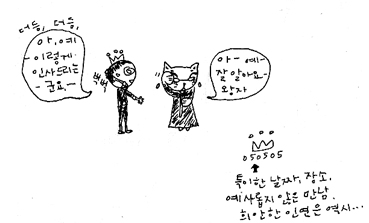 더듬, 더듬,
아, 예
- 이렇게
인사드리는
- 군요.-
뻑뻑
아- 예-
잘 알아요-
왕자
050505
특이한 날짜, 장소.
예사롭지 않은 만남.
희안한 인연은 역시...